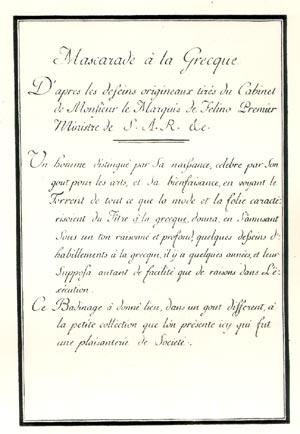 Mascarade à la Grecque
D'après les desseins origineaux tirés du Cabinet
de Monsieur le Marquis de Felino Premier
Ministre de S. A. R. &c.
Un homme distingué par Sa naissance, celebre par Son
gout pour les arts, et Sa bienfaisance, en voyant le
Torrent de tout ce que la mode et la folie caracté
risoient du Titre à la grecque, donna, en S'amusant
Sous un ton raisonné et profond, quelques desseins d'
habillements à la grecque, il y a quelques années, et leur
Supposa autant de facilité que de raisons dans L'é
xécution.
Ce Badinage à donné lieu, dans un gout different, à
la petite collection que l'on présente icy qui fut
une plaisanterie de Societé.